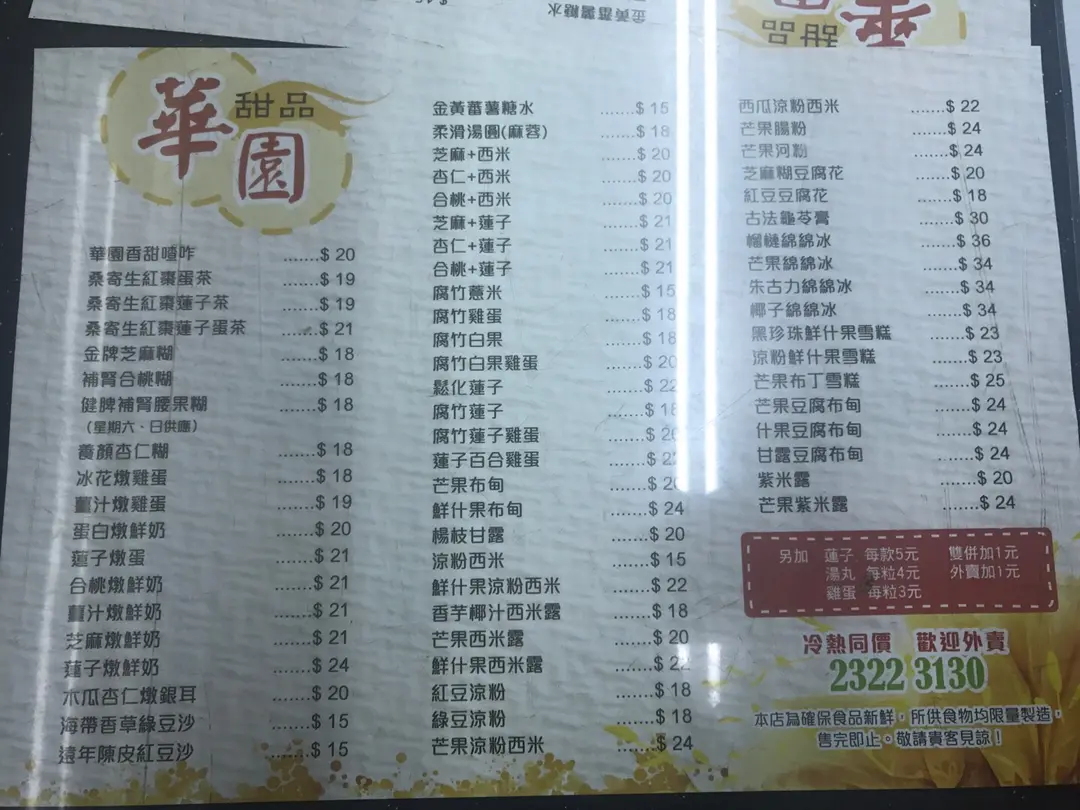 金黃蕃薯糖水
甜品
華園
甜品
華園香甜喳咋 .......$ 20
桑寄生紅棗蛋茶 .......$ 19
桑寄生紅棗蓮子茶 .......$ 19
桑寄生紅棗蓮子蛋茶 .......$ 21
金牌芝麻糊 .......$ 18
補腎合桃糊 .......$ 18
健脾補腎腰果糊 .......$ 18
(星期六、日供應)
養顏杏仁糊 .......$ 18
冰花燉雞蛋 .......$ 18
薑汁燉雞蛋 .......$ 19
蛋白燉鮮奶 .......$ 20
蓮子燉蛋 .......$ 21
合桃燉鮮奶 .......$ 21
薑汁燉鮮奶 .......$ 21
芝麻燉鮮奶 .......$ 21
蓮子燉鮮奶 .......$ 24
木瓜杏仁燉銀耳 .......$ 20
海帶香草綠豆沙 .......$ 15
遠年陳皮紅豆沙 .......$ 15
金黃蕃薯糖水 .......$ 15
柔滑湯圓(麻蓉) .......$ 18
芝麻+西米 .......$ 20
杏仁+西米 .......$ 20
合桃+西米 .......$ 20
芝麻+蓮子 .......$ 21
杏仁+蓮子 .......$ 21
合桃+蓮子 .......$ 21
腐竹薏米 .......$ 15
腐竹雞蛋 .......$ 18
腐竹白果 .......$ 18
腐竹白果雞蛋 .......$ 20
鬆化蓮子 .......$ 22
腐竹蓮子 .......$ 18
腐竹蓮子雞蛋 .......$ 20
蓮子百合雞蛋 .......$ 22
芒果布甸 .......$ 20
鮮什果布甸 .......$ 24
楊枝甘露 .......$ 20
涼粉西米 .......$ 15
鮮什果涼粉西米 .......$ 22
香芋椰汁西米露 .......$ 18
芒果西米露 .......$ 20
鮮什果西米露 .......$ 22
紅豆涼粉 .......$ 18
綠豆涼粉 .......$ 18
芒果涼粉西米 .......$ 24
西瓜涼粉西米 .......$ 22
芒果腸粉 .......$ 24
芒果河粉 .......$ 24
芝麻糊豆腐花 .......$ 20
紅豆豆腐花 .......$ 18
古法龜苓膏 .......$ 30
榴槤綿綿冰 .......$ 36
芒果綿綿冰 .......$ 34
朱古力綿綿冰 .......$ 34
椰子綿綿冰 .......$ 34
黑珍珠鮮什果雪糕 .......$ 23
涼粉鮮什果雪糕 .......$ 23
芒果布丁雪糕 .......$ 25
芒果豆腐布甸 .......$ 24
什果豆腐布甸 .......$ 24
甘露豆腐布甸 .......$ 24
紫米露 .......$ 20
芒果紫米露 .......$ 24
另加 蓮子 每款5元 雙併加1元
湯丸 每粒4元 外賣加1元
雞蛋 每粒3元
冷熱同價 歡迎外賣
2322 3130
本店為確保食品新鮮，所供食物均限量製造，
售完即止。敬請貴客見諒！